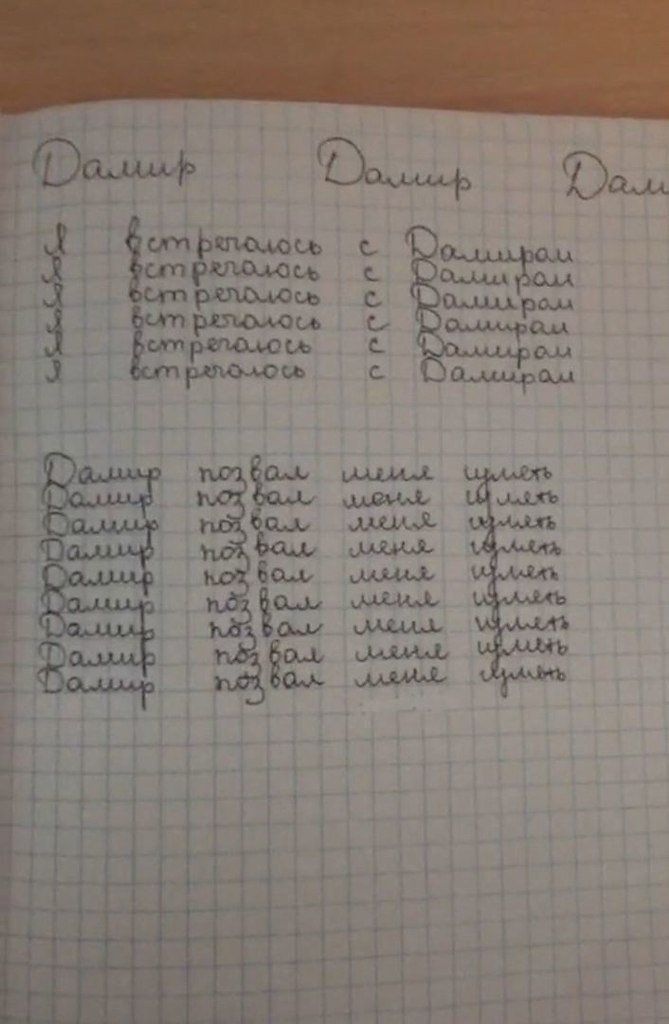 Дамир Дамир Дами
Я встречаюсь с Дамиром
Я встречаюсь с Дамиром
Я встречаюсь с Дамиром
Я встречаюсь с Дамиром
Я встречаюсь с Дамиром
Я встречаюсь с Дамиром
Дамир позвал меня гулять
Дамир позвал меня гулять
Дамир позвал меня гулять
Дамир позвал меня гулять
Дамир позвал меня гулять
Дамир позвал меня гулять
Дамир позвал меня гулять
Дамир позвал меня гулять
Дамир позвал меня гулять